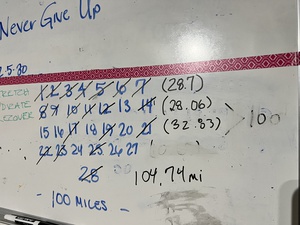 Never Give Up
25:30
1 2 3 4 5 6 7 (28.7)
8 9 10 11 12 13 14 (28.06)
15 16 17 18 19 20 21 (32.83) 100
22 23 24 25 26 27
28 104.74 mi
- 100 MILES -